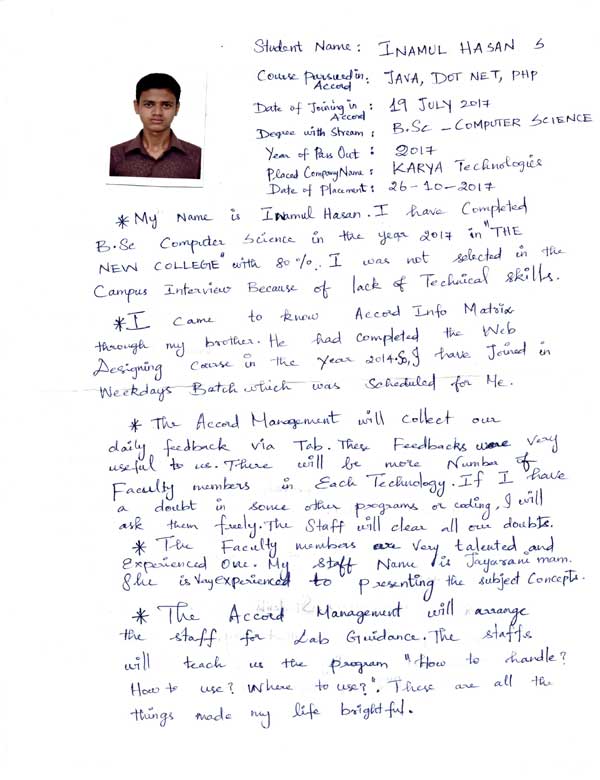 Student Name : INAMUL HASAN S
Course Pursued in Accord : JAVA, DOT NET, PHP
Date of Joining in Accord : 19 JULY 2017
Degree with Stream : B.Sc – COMPUTER SCIENCE
Year of Pass Out : 2017
Placed Company Name : KARYA Technologies
Date of Placement : 26-10-2017
* My Name is Inamul Hasan. I have Completed
B.Sc Computer Science in the year 2017 in "THE
NEW COLLEGE" with 80%. I was not selected in the
Campus Interview Because of lack of Technical skills.
* I came to know Accord Info Matrix
through my brother. He had completed the Web
Designing Course in the Year 2014. So, I have Joined in
Weekdays Batch which was Scheduled for Me.
* The Accord Management will collect our
daily feedback via Tab. These Feedbacks were very
useful to us. There will be more Number of
Faculty members in Each Technology. If I have
a doubt in some other programs or coding, I will
ask them freely. The Staff will clear all our doubts.
* The Faculty members are Very talented and
Experienced One. My staff Name is Jayarani mam.
She is Very experienced to presenting the subject Concepts.
* The Accord Management will arrange
the staff for Lab Guidance. The staffs
will teach us the program "How to handle?
How to use? Where to use?". These are all the
things made my life brightful.